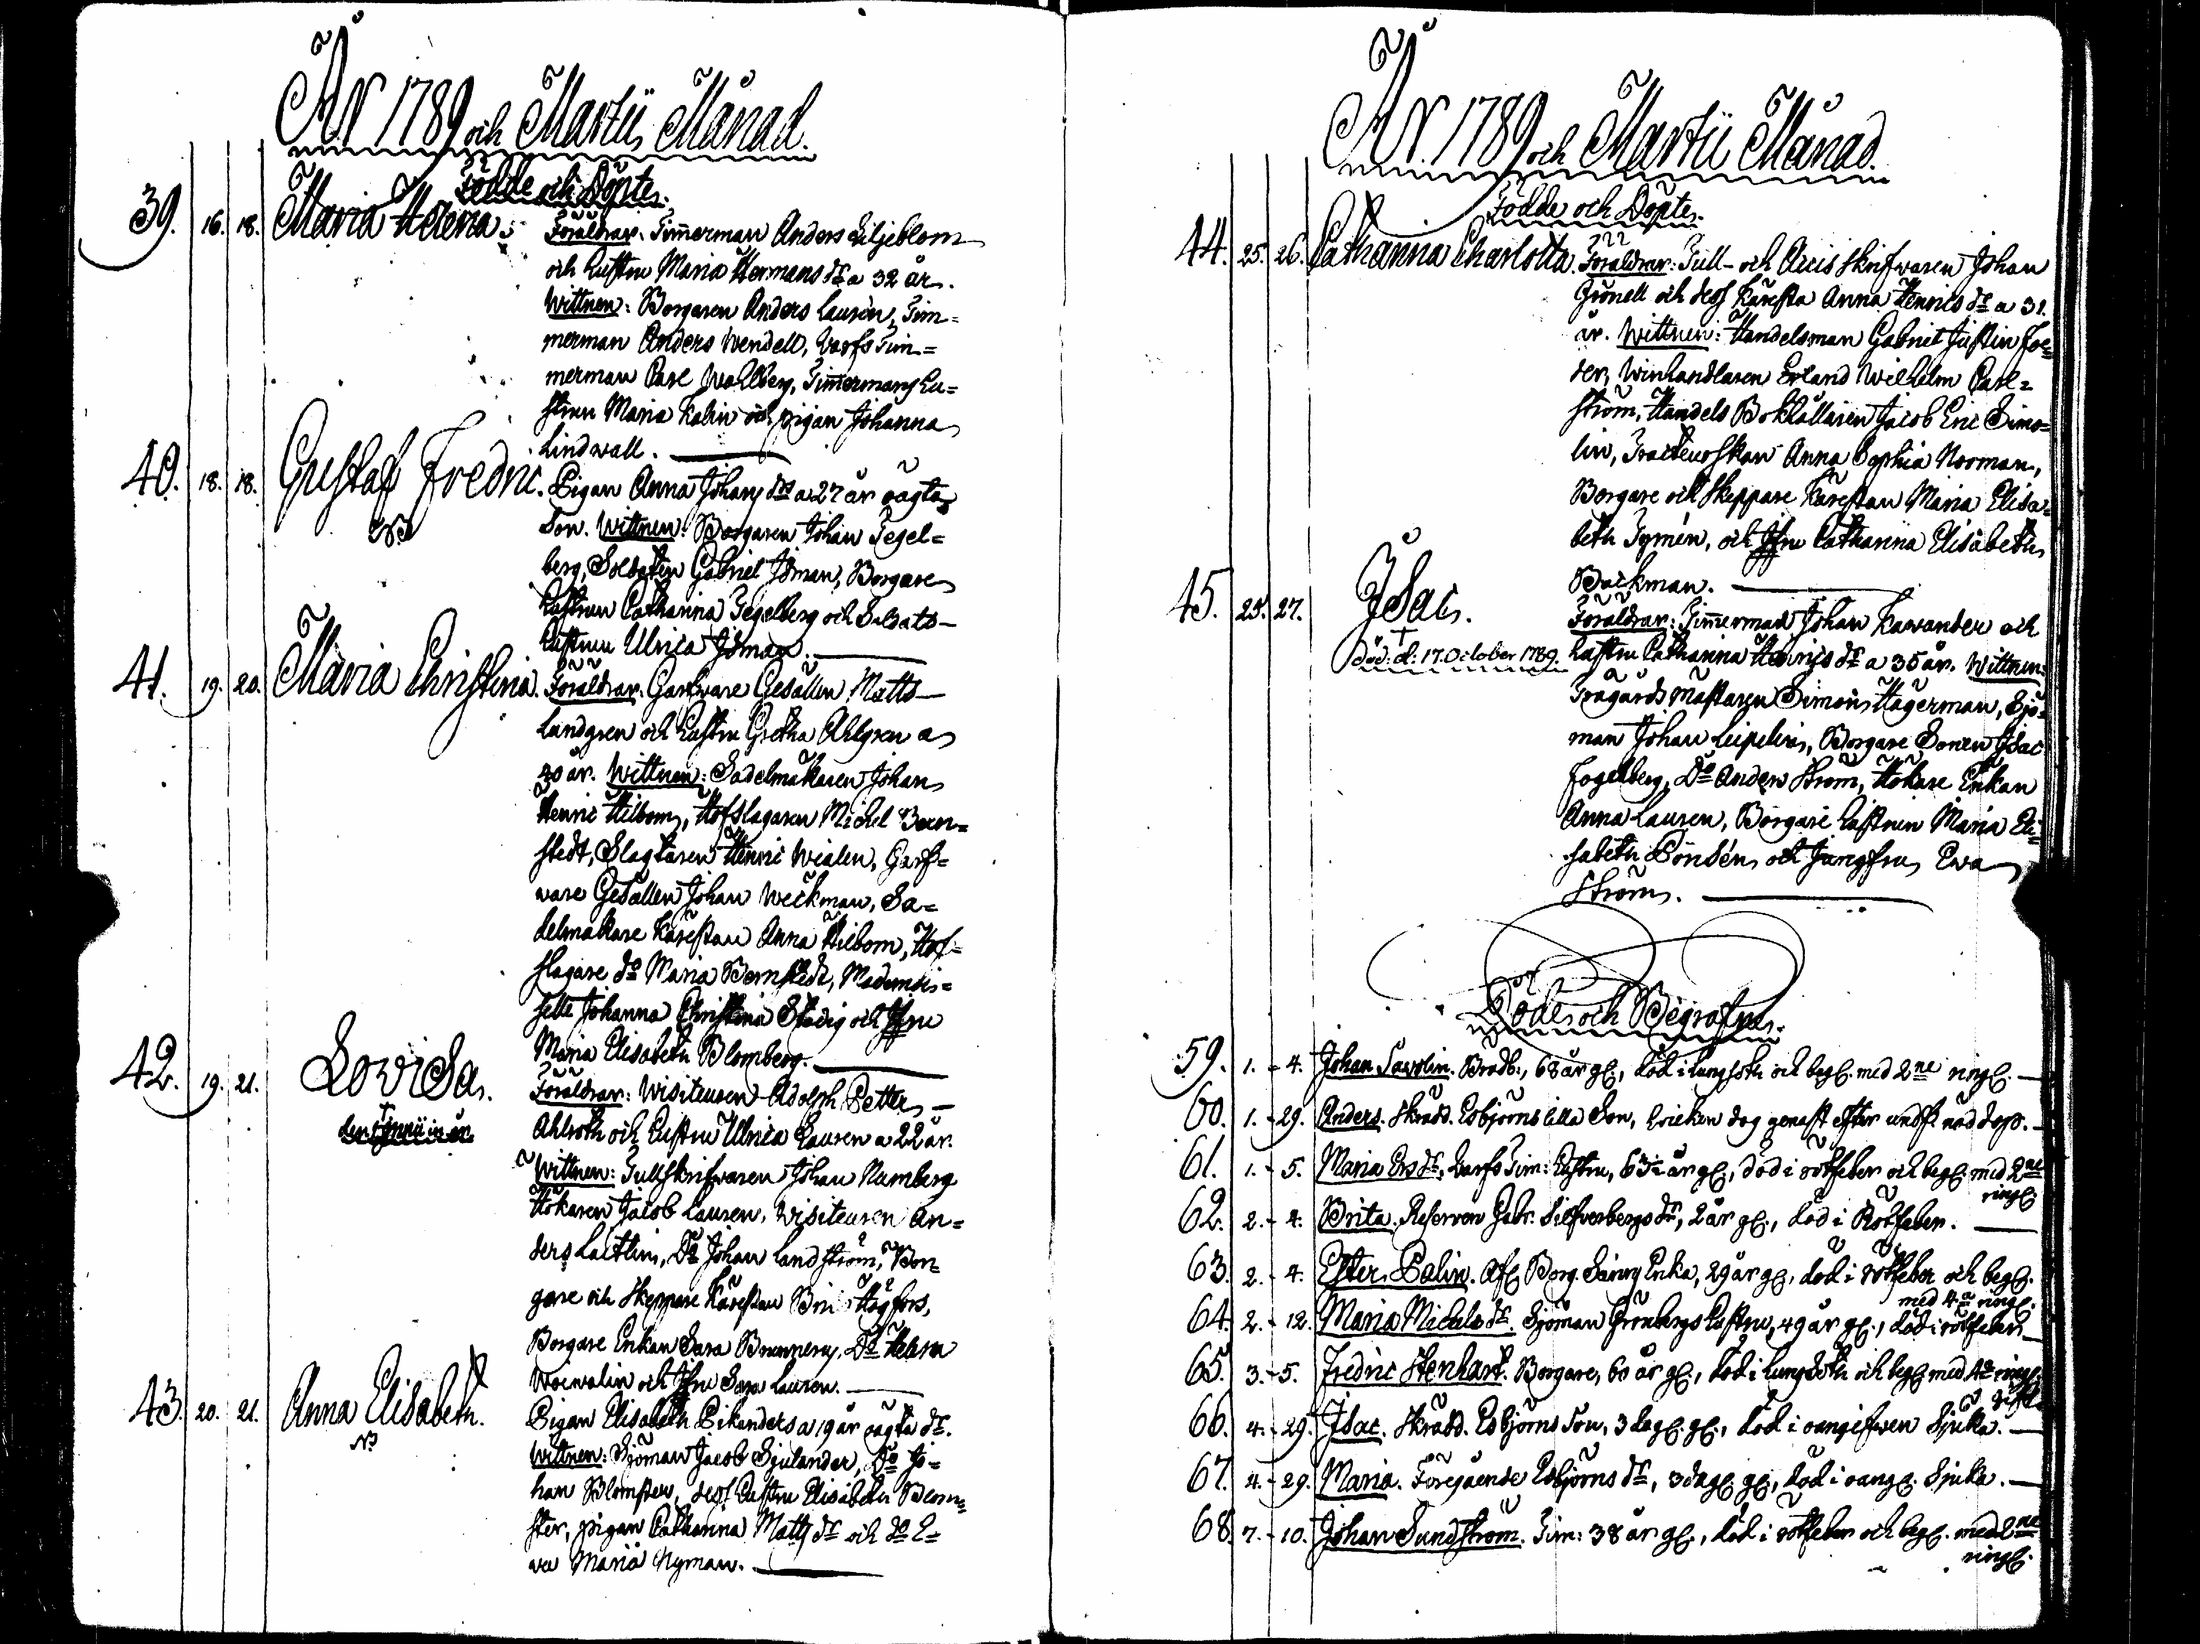 ÅR 1789 och Martii Månad.
Födde och Döpte.
39. 16. 18. Maria Helena.
Föräldrar. Timmerman Anders Liljeblom
och hustru Maria Hermans dr a 32 år.
Wittnen: Borgaren Anders Lauren, Tim=
merman Anders Wendell, Varfs Tim=
merman Carl Wahlberg, Timmermans hu=
strun Maria Kalin och pigan Johanna
Lindwall.
40. 18. 18. Gustaf Fredric.
Pigan Anna Johans dr a 27 år oägta
Son. Wittnen: Borgaren Johan Tegel=
berg, Soldaten Gabriel Isman, Borgare
hustrun Catharina Tegelberg och Soldats
hustrun Ulrica Isman.
41. 19. 20. Maria Christina.
Föräldrar. Garfvare Gesällen Matts
Landgren och hustru Gretha Ahlgren a
30 år. Wittnen: Sadelmakaren Johan
Henric Hilbom, Hofslagaren Michel Bern=
stedt, Slagtaren Henric Wialen, Garf=
vare Gesällen Johan Weckman, Sa=
delmakare Kärestan Anna Hilbom, Hof=
slagare do Maria Bernstedt, Mademois=
selle Johanna Christina Stadig och Jfru
Maria Elisabeth Blomberg.
42. 19. 21. Lovisa.
Föräldrar: Wisiteuren Adolph Petter
Ahlroth och hustru Ulrica Lauren a 22 år.
Wittnen: Tullskrifvaren Johan Numberg
Hökaren Jacob Lauren, Wisiteuren An=
ders Laitlin, Do Johan Landström, Bor=
gare och Skeppare Kärestan Högfors,
Borgare Enkan Sara Brunnera, Do Helena
och Jfru Sara Lauren.
43. 20. 21. Anna Elisabeth.
Pigan Elisabeth Pikanders a 19 år oägta dr.
Wittnen: Sjöman Jacob Sjulander, Do Jo=
han Blomster, dess hustru Elisabeth Blom=
ster, pigan Catharina Matts dr och do E=
va Maria Nyman.
ÅR 1789 och Martii Månad.
Födde och Döpte.
44. 25. 26. Catharina Charlotta
Föräldrar: Tull- och Accis skrifvaren Johan
Grönell och dess Käresta Anna Henrics dr a 31.
år. Wittnen: Handelsman Gabriel Justin Foe=
der, Winhandlaren Erland Wilhelm Carl=
ström, Handels Bokhållaren Jacob Eric Simo=
lin, Tracteurskan Anna Sophia Norman,
Borgare och Skeppare Kärestan Maria Elisa=
beth Tymén, och Jfru Catharina Elisabeth
Backman.
45. 25. 27. Isac.
död: d: 17. October 1789.
Föräldrar: Timmerman Johan Kavander och
hustru Catharina Henrics dr a 35 år. Wittnen:
Trägårds Mästaren Simon Hägerman, Sjö=
man Johan Leipelin, Borgare Sonen Isac
Fogelberg, Do Anders Ström, Hökare Enkan
Anna Lauren, Borgare hustrun Maria Eli=
sabeth Pönsén, och Jungfru Ewa
Ström.
Döde och Begrafne.
59. 1. - 4. Johan Savolin. Brodb., 68 år gl., död i lungsoth och begl. med 2ne ringl.
60. 1. - 29. Anders. Skrädd. Esbjörns lilla Son, hvilken dog genast efter undf. nöd dop.
61. 1. - 5. Maria Ers dr, Varfs Tim: hustru, år gl, död i rötfeber och begl. med 2ne
ringl.
62. 2. - 4. Brita. Reserven Gabr. Silfverbergs dr, 2 år gl., död i Rötfeber.
63. 2. - 4. Ester Palin. Afl. Borg. Enka, 29 år gl., död i rötfeber och begl.
med 4a ringl.
64. 2. - 12. Maria Michels dr. Sjöman Grönbergs hustru, 49 år gl., död i rötfeber
65. 3. - 5. Fredric Stenhart. Borgare, 60 år gl., död i lungsoth och begl. med 4a ringl.
66. 4. - 29. Isac. Skrädd. Esbjörns Son, 3 dagl. gl., död i oangifwen Sjuka.
67. 4. - 29. Maria. Föregående Esbjörns dr, 3 dagl. gl, död i oangl. Sjuka.
68. 7. - 10. Johan Sundström. Tim: 38 år gl., död i rötfeber och begl. med 2ne
ringl.